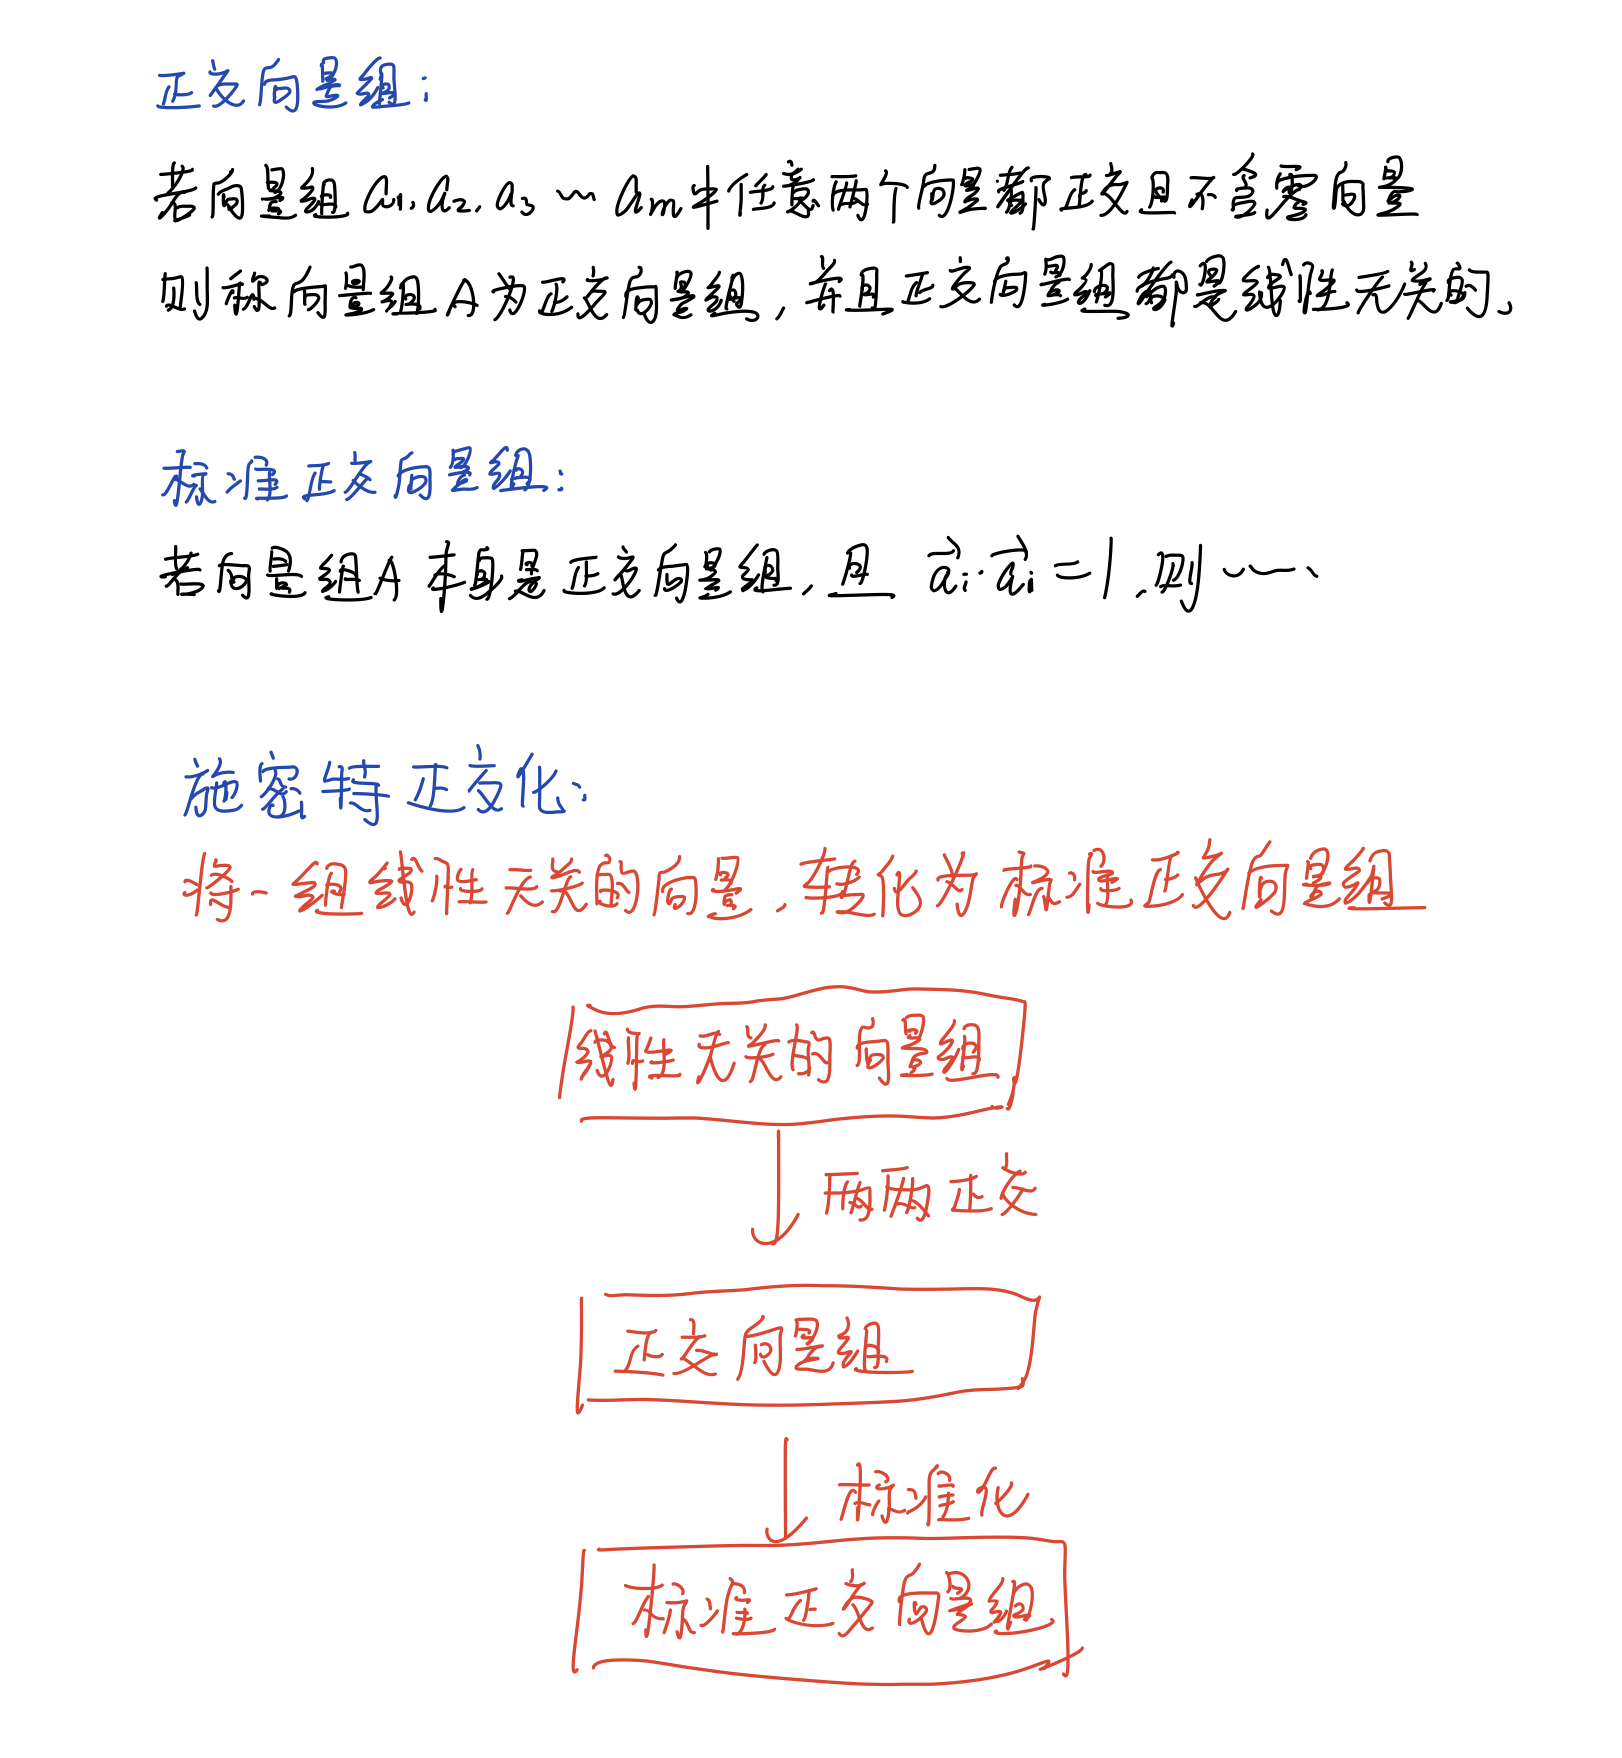 正交向量组:
若向量组 a₁, a₂, a₃ ~ aₘ中任意两个向量都正交且不含零向量
则称向量组A为正交向量组, 并且正交向量组都是线性无关的。
标准正交向量组:
若向量组A本身是正交向量组, 且 a⃗ᵢ·a⃗ᵢ=1, 则……
施密特正交化:
将一组线性无关的向量, 转化为标准正交向量组
线性无关的向量组
两两正交
正交向量组
标准化
标准正交向量组